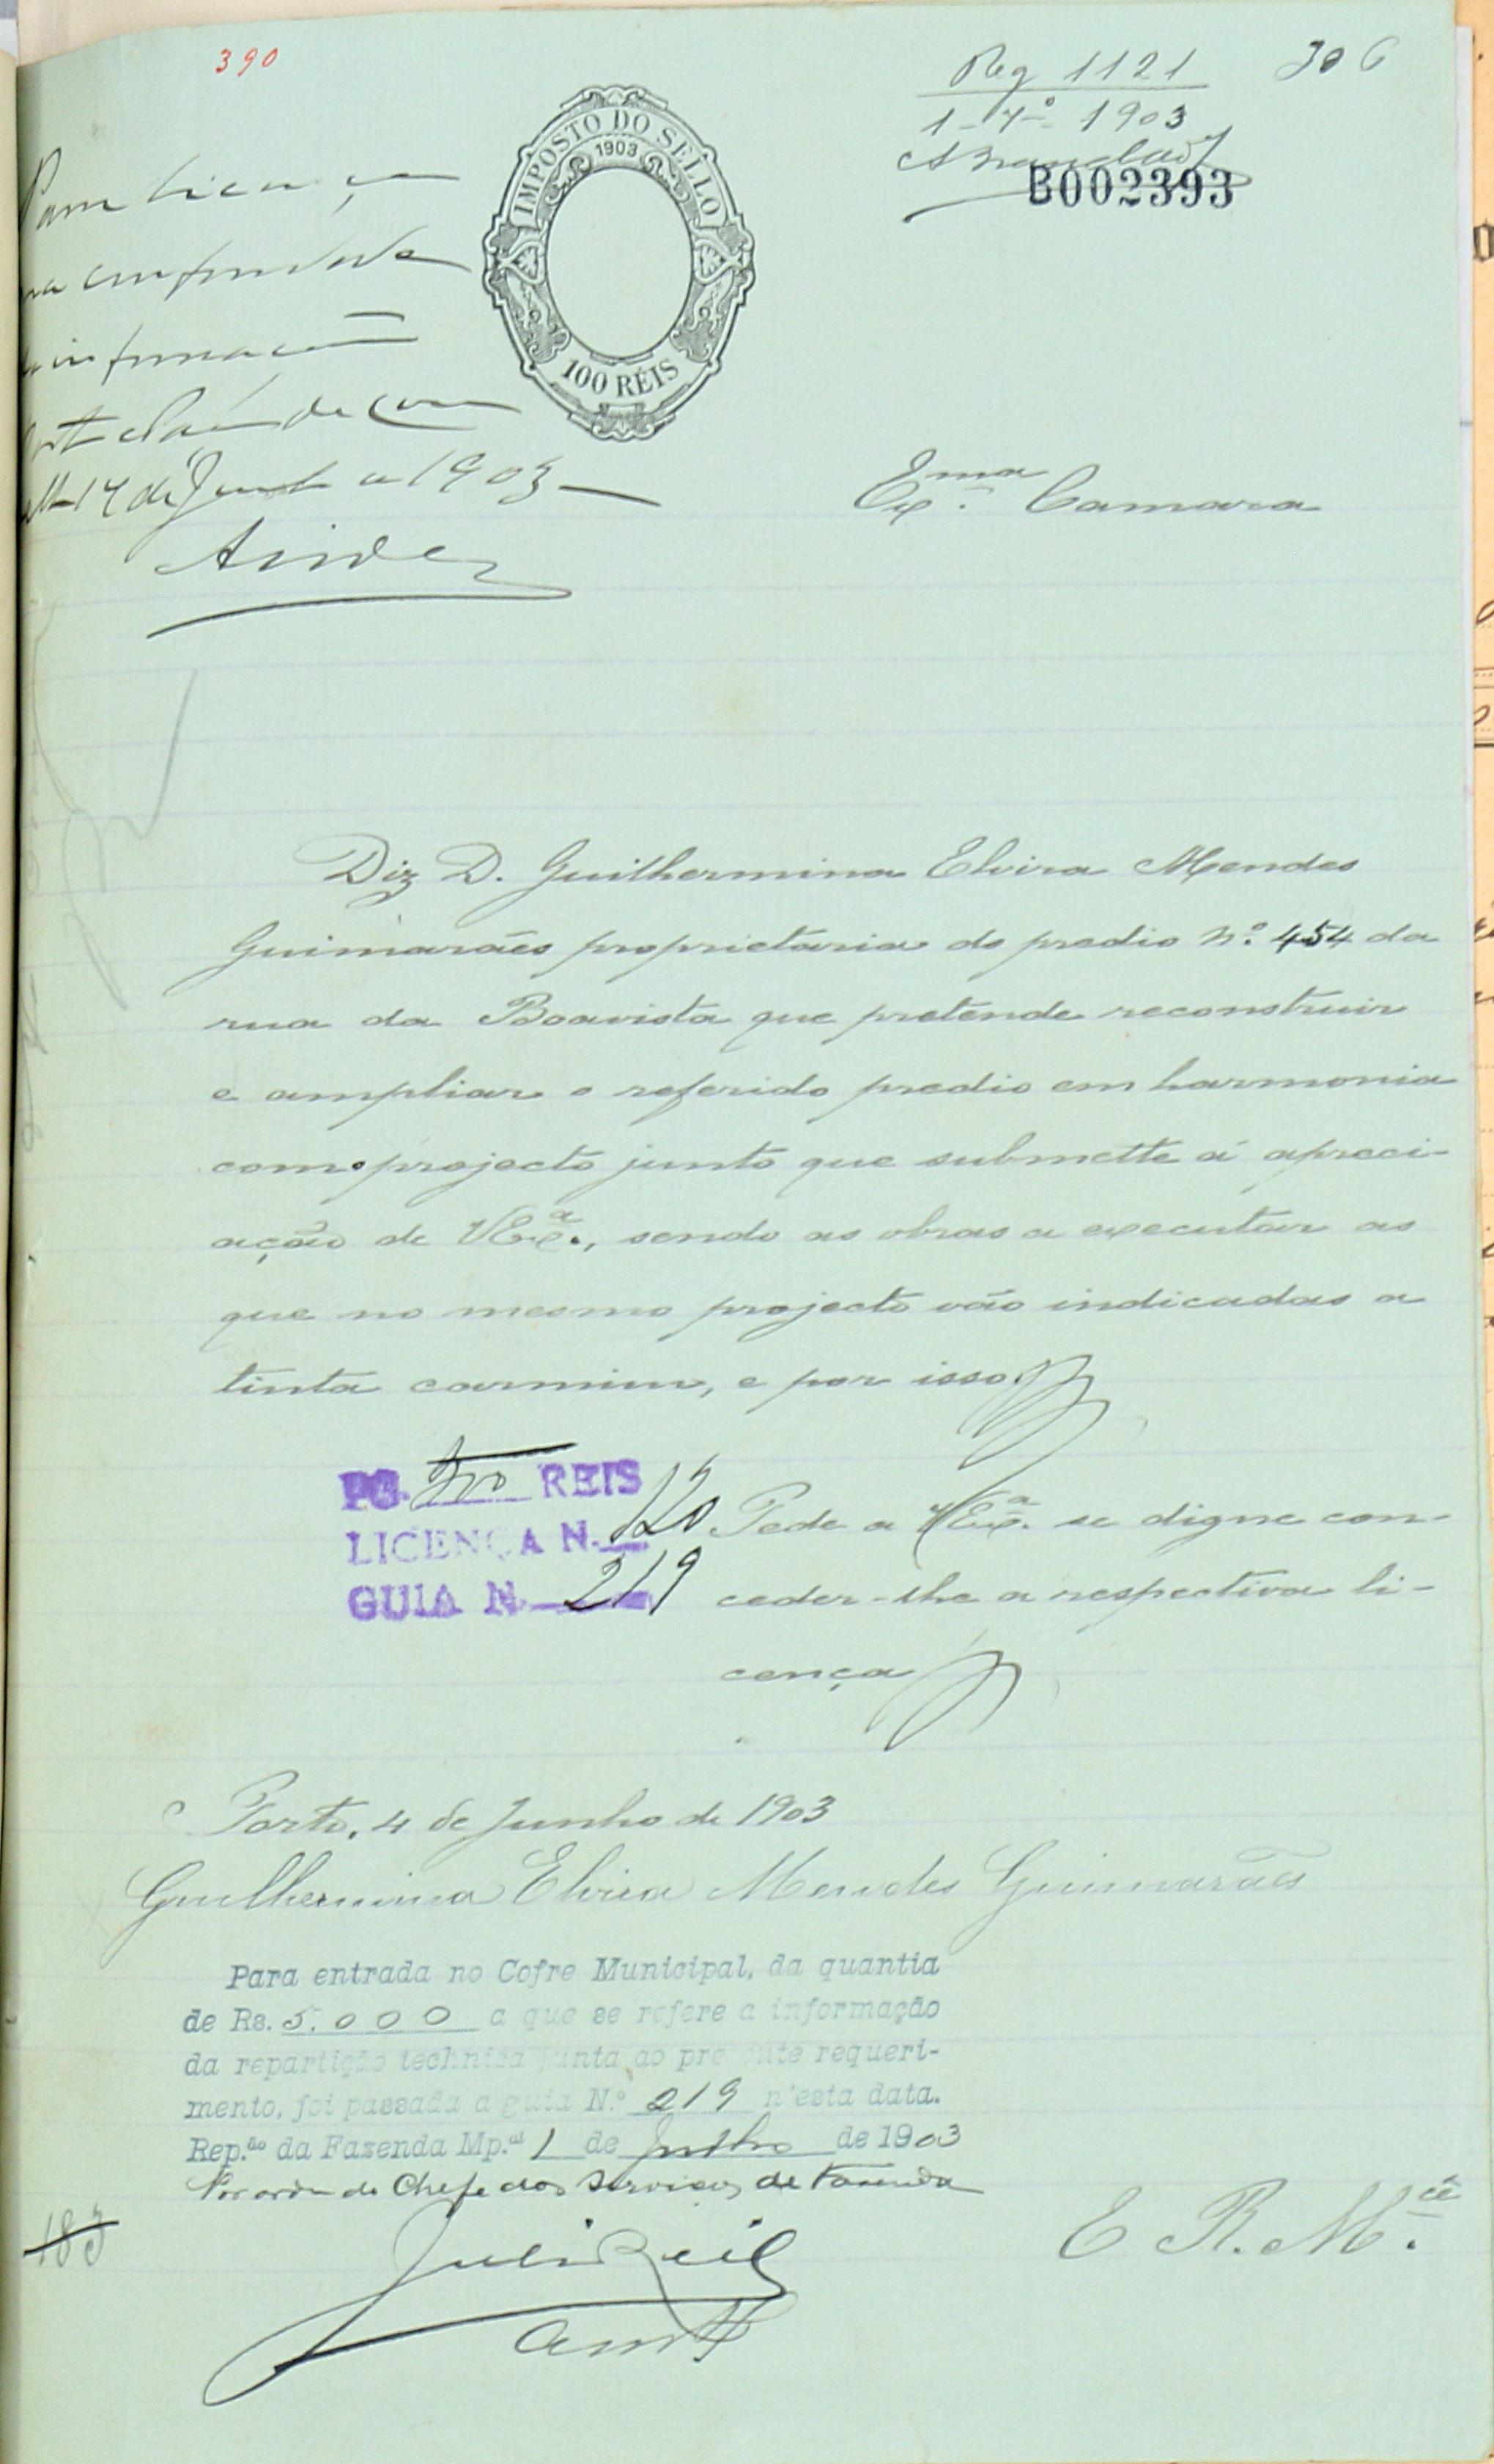 390
Reg 1121
306
1-7º-1903
B002393
IMPOSTO DO SELLO
1903
100 RÉIS
licença
informação
Paço do Con
17 de Junho de 1903
Exma. Camara
Diz D. Guilhermina Elvira Mendes
Guimarães proprietaria do predio Nº. 454 da
rua da Boavista que pretende reconstruir
e ampliar o referido predio em harmonia
com o projecto junto que submette á apreci-
ação de VExª., sendo as obras a executar as
que no mesmo projecto vão indicadas a
tinta carmim, e por isso
PG. 500 REIS
LICENÇA N. 120
GUIA N. 219
Pede a VExª. se digne con-
ceder-lhe a respectiva li-
cença
Porto, 4 de Junho de 1903
Guilhermina Elvira Mendes Guimarães
Para entrada no Cofre Municipal, da quantia
de Rs. 5.000 a que se refere a informação
da repartição technica junta ao presente requeri-
mento, foi passada a guia N.º 219 n'esta data.
Rep.ão da Fazenda Mp.al 1 de Julho de 1903
Por ordem do Chefe dos Serviços de Fazenda
E R. Mcê.
183